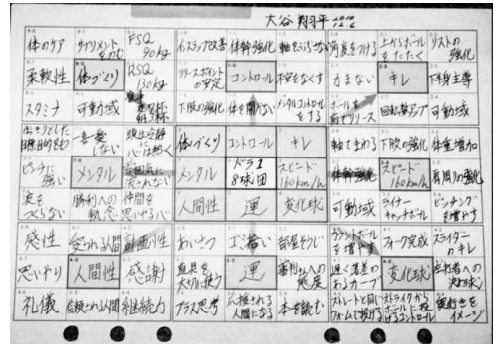 大谷 翔平
体のケア
サプリメントをのむ
FSQ 90kg
インステップ改善
体幹強化
軸をぶらさない
角度をつける
上からボールをたたく
リストの強化
柔軟性
体づくり
RSQ 130kg
リリースポイントの安定
コントロール
不安をなくす
力まない
キレ
下半身主導
スタミナ
可動域
下肢の強化
体を開かない
メンタルコントロールをする
ボールを前でリリース
回転数アップ
可動域
一喜一憂しない
頭は冷静に心は熱く
体づくり
コントロール
キレ
軸でまわる
下肢の強化
体重増加
ピンチに強い
メンタル
雰囲気に流されない
メンタル
ドラ1 8球団
スピード 160km/h
体幹強化
スピード 160km/h
肩周りの強化
波をつくらない
勝利への執念
仲間を思いやる心
人間性
運
変化球
可動域
ライナーキャッチボール
ピッチングを増やす
感性
愛される人間
計画性
あいさつ
ゴミ拾い
部屋そうじ
カウントボールを増やす
フォーク完成
スライダーのキレ
思いやり
人間性
感謝
道具を大切に使う
運
審判さんへの態度
遅く落差のあるカーブ
変化球
左打者への決め球
礼儀
信頼される人間
継続力
プラス思考
応援される人間になる
本を読む
ストレートと同じフォームで投げる
ストライクからボールに投げるコントロール
奥行きをイメージ